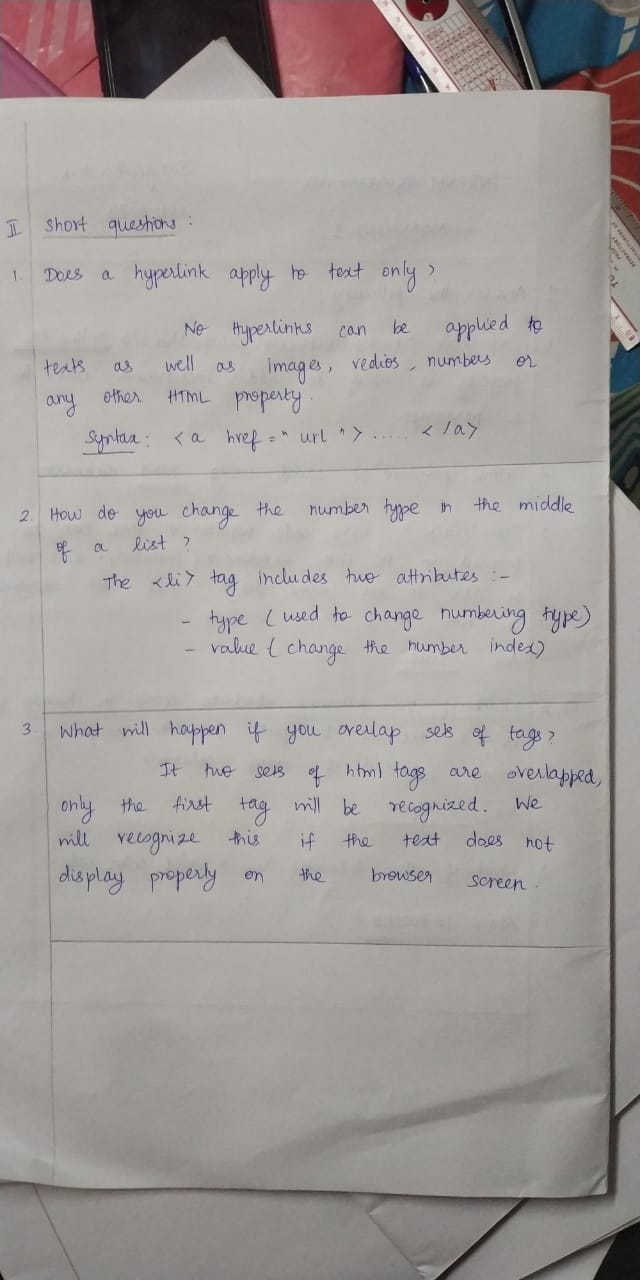 II short questions :
1. Does a hyperlink apply to text only ?
No Hyperlinks can be applied to
texts as well as images, vedios, numbers or
any other HTML property.
Syntax : <a href = "url"> ..... </a>
2. How do you change the number type in the middle
of a list ?
The <li> tag includes two attributes :-
- type ( used to change numbering type)
- value ( change the number index)
3 What will happen if you overlap sets of tags ?
If two sets of html tags are overlapped,
only the first tag will be recognized. We
will recognize this if the text does not
display properly on the browser screen.